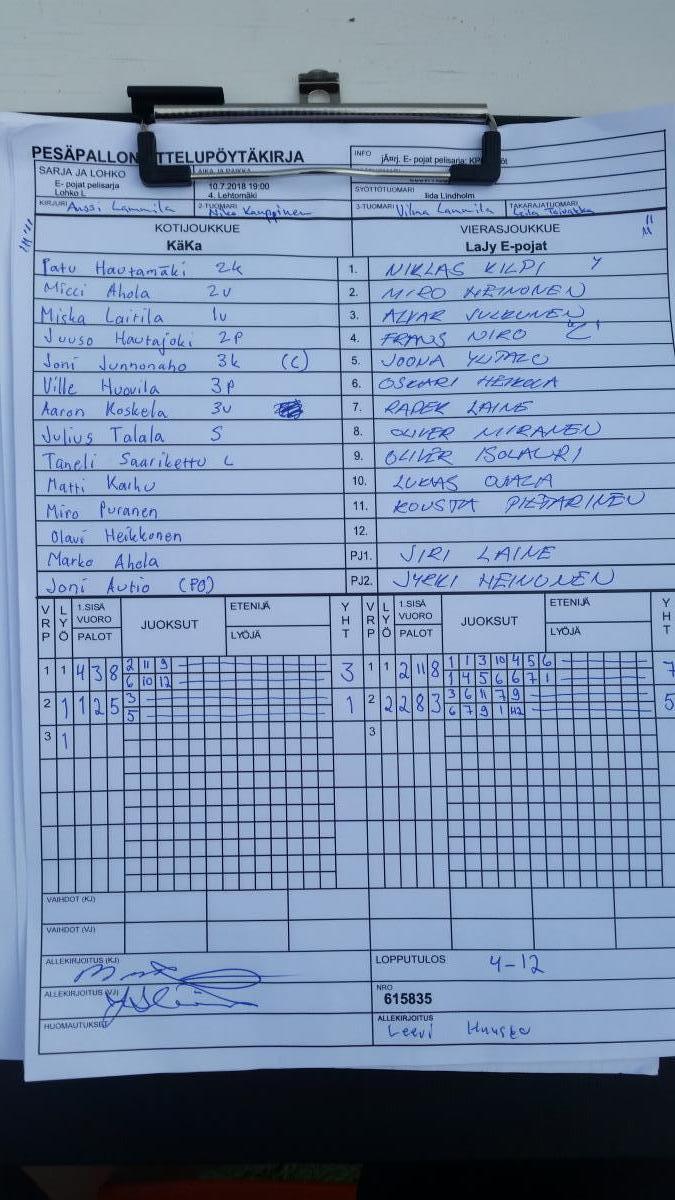 PESÄPALLON TTELUPÖYTÄKIRJA
INFO
jÄrj. E- pojat pelisarja:
SARJA JA LOHKO
E- pojat pelisarja
Lohko L
10.7.2018 19:00
4. Lehtomäki
SYÖTTÖTUOMARI
Iida Lindholm
KIRJURI Anssi Lammila
2-TUOMARI Niko Kauppinen
3-TUOMARI Vilma Lammila
TAKARAJATUOMARI
KOTIJOUKKUE
KäKa
VIERASJOUKKUE
LaJy E-pojat
Patu Hautamäki 2k 1. NIKLAS KILPI
Micci Ahola 2v 2. MIRO HEINONEN
Miska Laitila 1v 3. ALVAR JULKUNEN
Juuso Hautajoki 2p 4. FRANS NIRO "C"
Joni Junnonaho 3k (C) 5. JOONA YLITALO
Ville Huovila 3p 6. OSKARI HEIKOLA
Aaron Koskela 3v 7. RADEK LAINE
Julius Talala S 8. OLIVER MIRANEN
Taneli Saarikettu L 9. OLIVER ISOLAURI
Matti Karhu 10. LUKAS OJALA
Miro Puranen 11. KOUSTA PIETARINEN
Olavi Heikkonen 12.
Marko Ahola PJ1. JIRI LAINE
Joni Autio (PO) PJ2. JYRKI HEINONEN
VRP LYÖ 1.SISÄ VUORO PALOT JUOKSUT ETENIJÄ LYÖJÄ YHT VRP LYÖ 1.SISÄ VUORO PALOT JUOKSUT ETENIJÄ LYÖJÄ YHT
1 1 4 3 8 2 11 9 3 1 1 2 11 8 1 1 3 10 4 5 6 7
6 10 12 1 4 5 6 6 7 1
2 1 1 2 5 3 1 2 2 2 8 3 3 6 11 7 9 5
5 6 7 9 1 12
3 1 3
VAIHDOT (KJ)
VAIHDOT (VJ)
ALLEKIRJOITUS (KJ)
LOPPUTULOS 4-12
ALLEKIRJOITUS (VJ)
NRO
615835
HUOMAUTUKSET
ALLEKIRJOITUS
Leevi Huusko